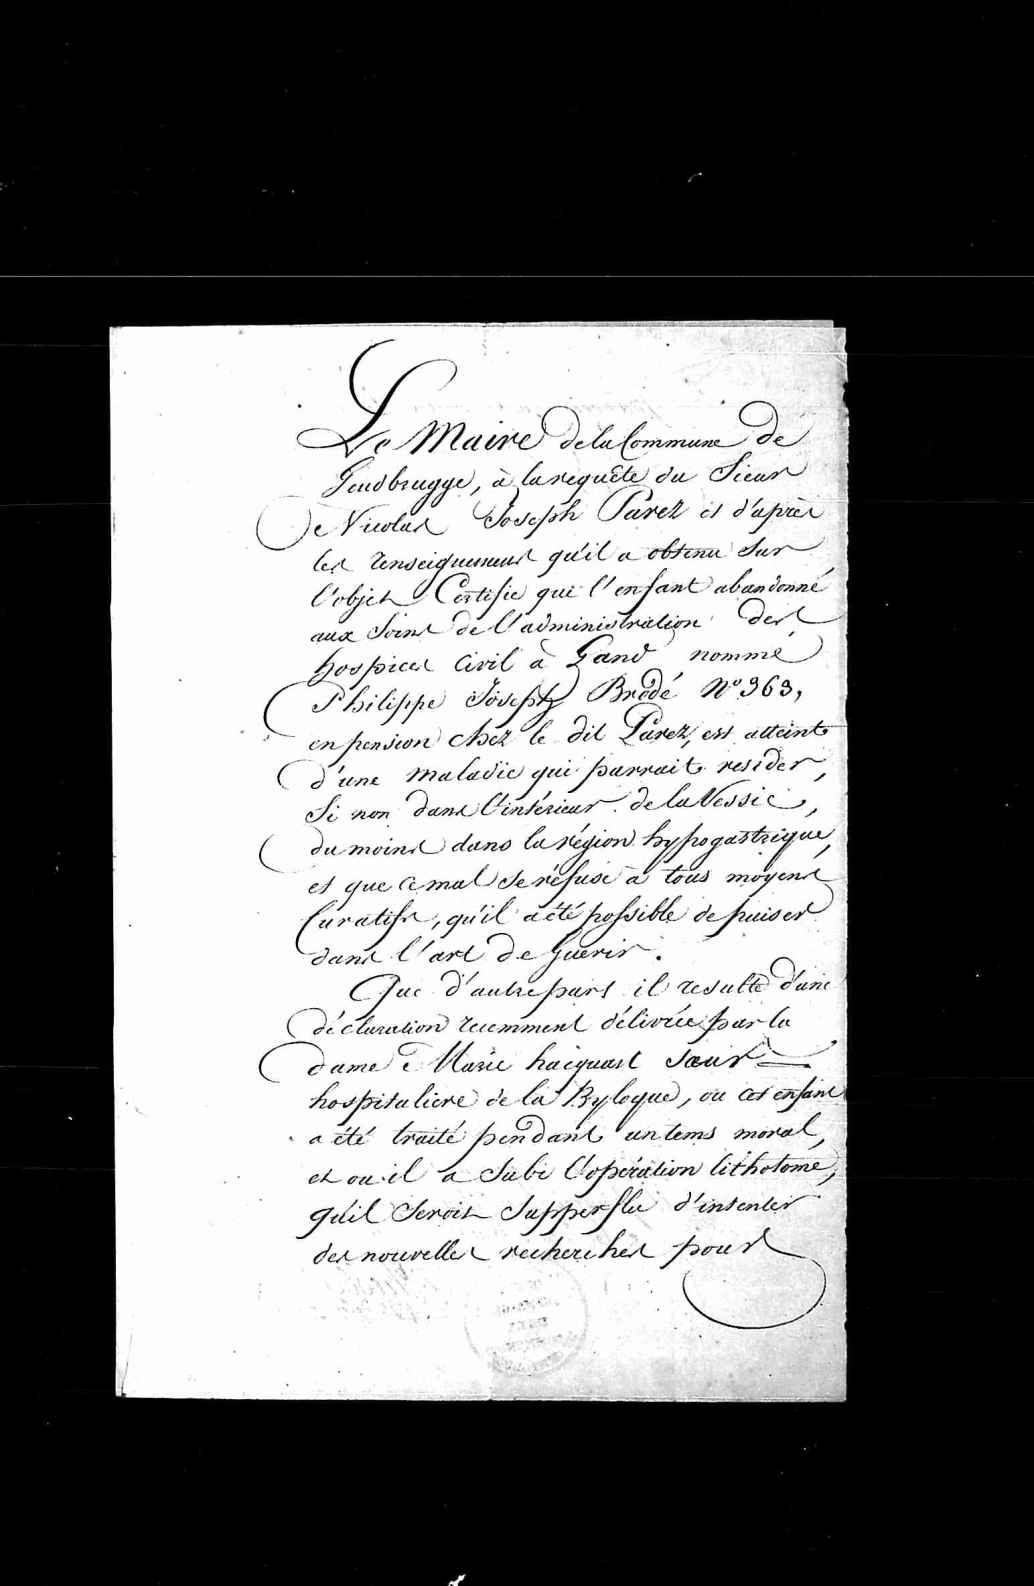 Le Maire de la Commune de
Gendbrugge, à la requête du Sieur
Nicolas Joseph Parez et d'après
les renseignemens qu'il a obtenu sur
l'objet Certifie que l'enfant abandonné
aux soins de l'administration des
hospices civil à Gand nommé
Philippe Joseph Brodé N° 363,
en pension chez le dit Parez, est atteint
d'une maladie qui parrait resider,
si non dans l'intérieur de la Vessie,
du moins dans la région hypogastrique,
et que ce mal se réfuse à tous moyens
Curatifs, qu'il a été possible de puiser
dans l'art de Guerir.
Que d'autre part il resulte d'une
déclaration recemment délivrée par la
dame Marie hacquart Sœur
hospitaliere de la Byloque, ou cet enfant
a été traité pendant un tems moral,
et ou il a subi l'opération lithotome,
qu'il seroit supperflu d'intenter
des nouvelles recherches pour